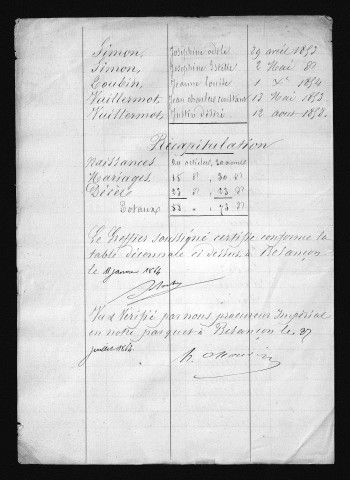 Simon, Josephine adele 29 avril 1853
Simon, Josephine Estelle 2 Mai d°
Toubin, Jeanne Louise 1 Xbre 1854
Vuillermot, Jean charles 13 Mai 1853
Vuillermot, 12 aout 1858.
Récapitulation
Naissances, 20 articles, 20 noms
Mariages, 15 d° 30 d°
Décès 23 d° 23 d°
Totaux 58 " 73 d°
Le Greffier soussigné certifie conforme la
table décennale ci dessus, à Besançon
le 11 janvier 1864
Vu & Vérifié par nous procureur Impérial
en notre parquet à Besançon le 27
juillet 1864.